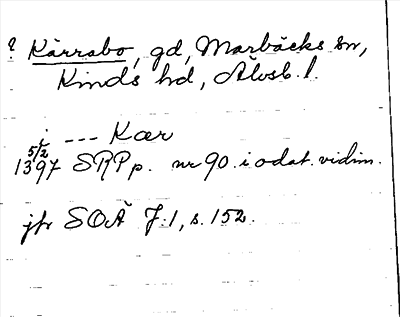 ? Kärrabo, gd, Marbäcks sn,
Kinds hd, Älvsb. l.
i --- Kær
5/2
1397 SRPp. nr 90. i odat. vidim.
jfr SOÄ 7:1, s. 152.